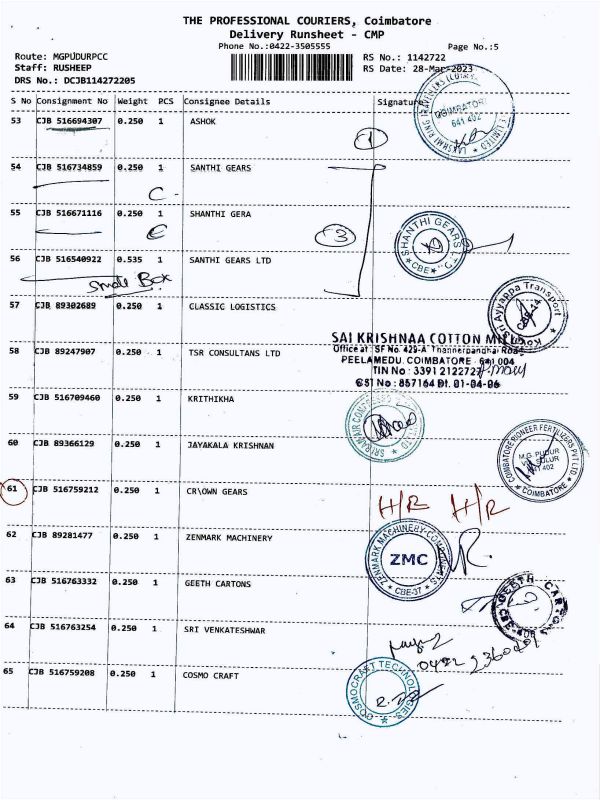 THE PROFESSIONAL COURIERS, Coimbatore
Delivery Runsheet - CMP
Phone No.:0422-3505555
Page No.:5
Route: MGPUDURPCC
RS No.: 1142722
Staff: RUSHEEP
RS Date: 28-Mar-2023
DRS No.: DCJB114272205
S No Consignment No Weight PCS Consignee Details Signature
53 CJB 516694307 0.250 1 ASHOK
COIMBATORE
641 402
1
54 CJB 516734859 0.250 1 SANTHI GEARS
C
55 CJB 516671116 0.250 1 SHANTHI GERA
C
3
SHANTHI GEARS LTD
CBE
56 CJB 516540922 0.535 1 SANTHI GEARS LTD
Small Box
57 CJB 89302689 0.250 1 CLASSIC LOGISTICS
Sri Ayyappa Transport
CBE-14
SAI KRISHNAA COTTON MILLS
Office at : SF No. 429-A Thanneerpandhal Road
PEELAMEDU. COIMBATORE - 641 004
TIN No : 3391 2122727
CST No : 857164 Dt. 01-04-06
58 CJB 89247907 0.250 1 TSR CONSULTANS LTD
59 CJB 516709460 0.250 1 KRITHIKHA
60 CJB 89366129 0.250 1 JAYAKALA KRISHNAN
COIMBATORE PIONEER FERTILIZERS PVT LTD
M.G. PUDUR
SULUR
402
COIMBATORE
61 CJB 516759212 0.250 1 CR\OWN GEARS
H/R H/R
62 CJB 89281477 0.250 1 ZENMARK MACHINERY
ZENMARK MACHINERY COMPONENTS
ZMC
CBE-37
63 CJB 516763332 0.250 1 GEETH CARTONS
GEETH CARTON
64 CJB 516763254 0.250 1 SRI VENKATESHWAR
65 CJB 516759208 0.250 1 COSMO CRAFT
COSMOCRAFT TECHNOLOGIES